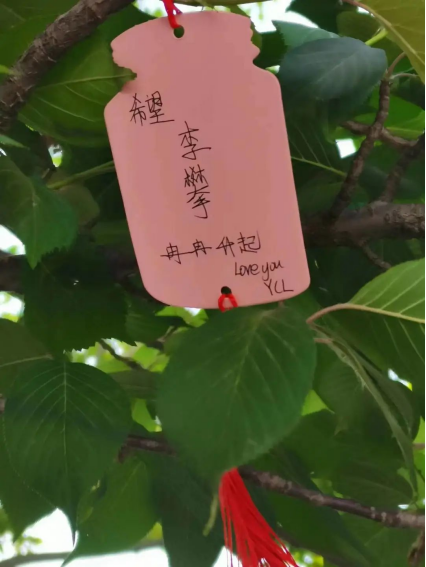 希望
李
冉冉升起
Love you
YCL